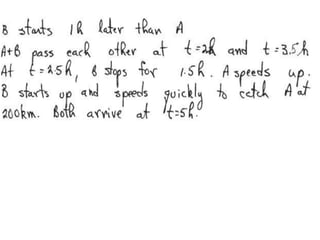 B starts 1h later than A
A+B pass each other at t=2h and t=3.5h
At t=2.5h, B stops for 1.5h. A speeds up.
B starts up and speeds quickly to catch A at
200km. Both arrive at t=5h.